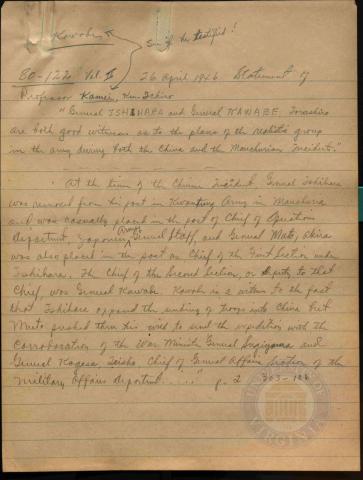 Kawabe
See if he testified!
80-122 Vol. II 26 April 1946 Statement of
Professor Kamei, Kan-Ichiro
"General ISHIHARA and General KAWABE, Torashiro
are both good witnesses as to the plans of the group
in the army during both the China and the Manchurian Incidents."
At the time of the Chinese Incident General Ishihara
was removed from his post in Kwantung Army in Manchuria
and was casually placed in the post of Chief of Operations
Department, Japanese Army General Staff, and General Muto, Akira
was also placed in the post as Chief of the First Section under
Ishihara. The Chief of the Second Section, or deputy to that
Chief, was General Kawabe. Kawabe is a witness to the fact
that Ishihara opposed the sending of troops into China but
Muto pushed thru his view to send the expedition with the
corroboration of the War Minister General Sugiyama and
General Kagesa, Chief of General Affairs Section of the
Military Affairs Department. ....." p. 2
UNIVERSITY OF VIRGINIA